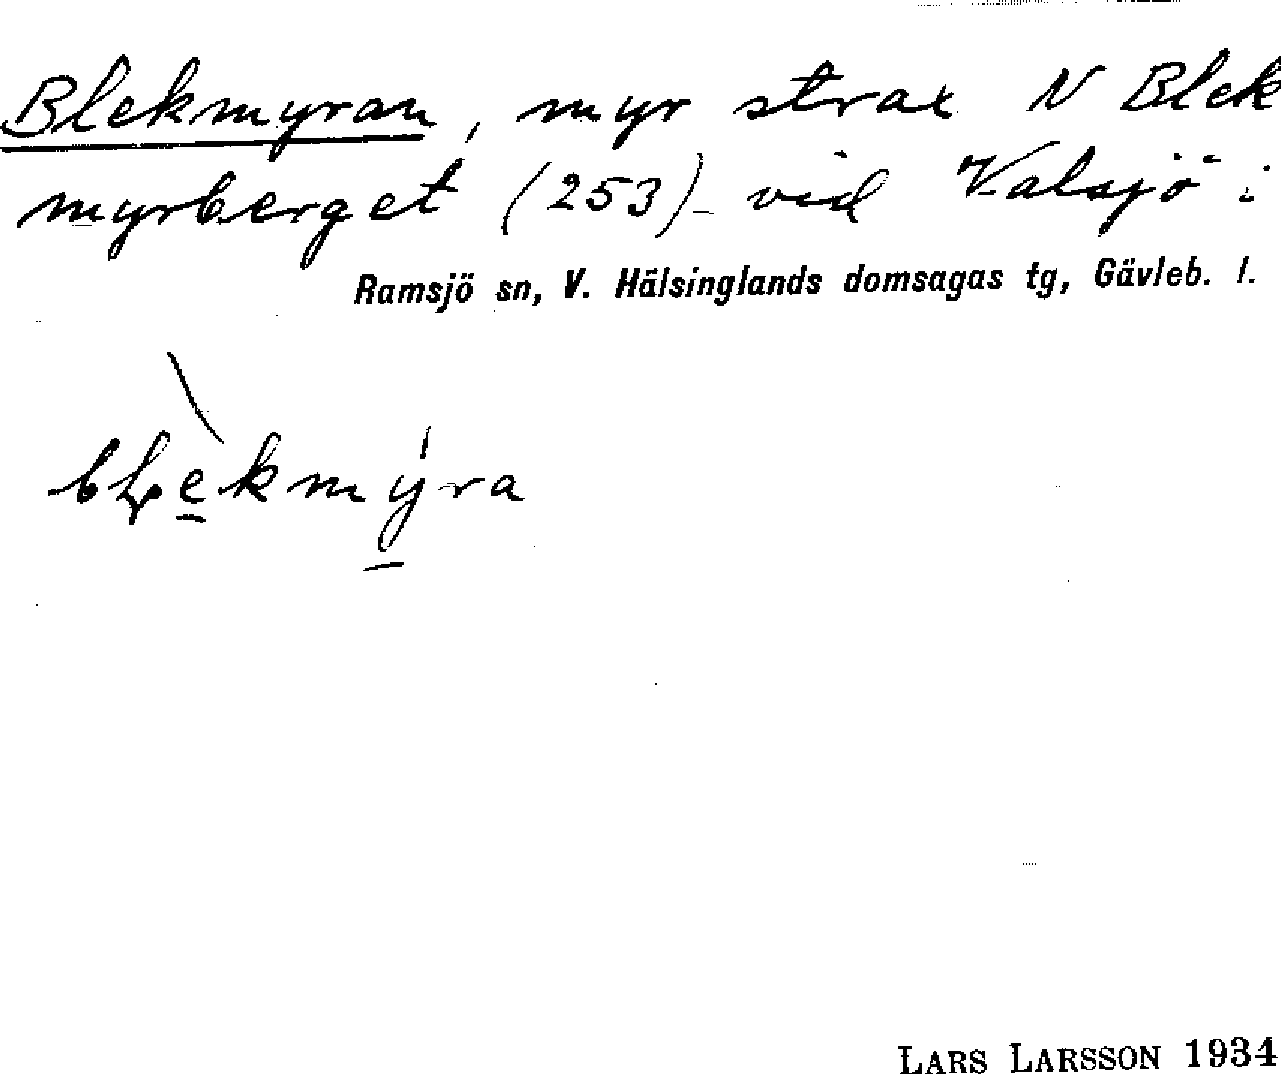 Blekmyran, myr strax N Blek
myrberget (253) vid Valsjö i
Ramsjö sn, V. Hälsinglands domsagas tg, Gävleb. l.
blèkmýra
LARS LARSSON 1934